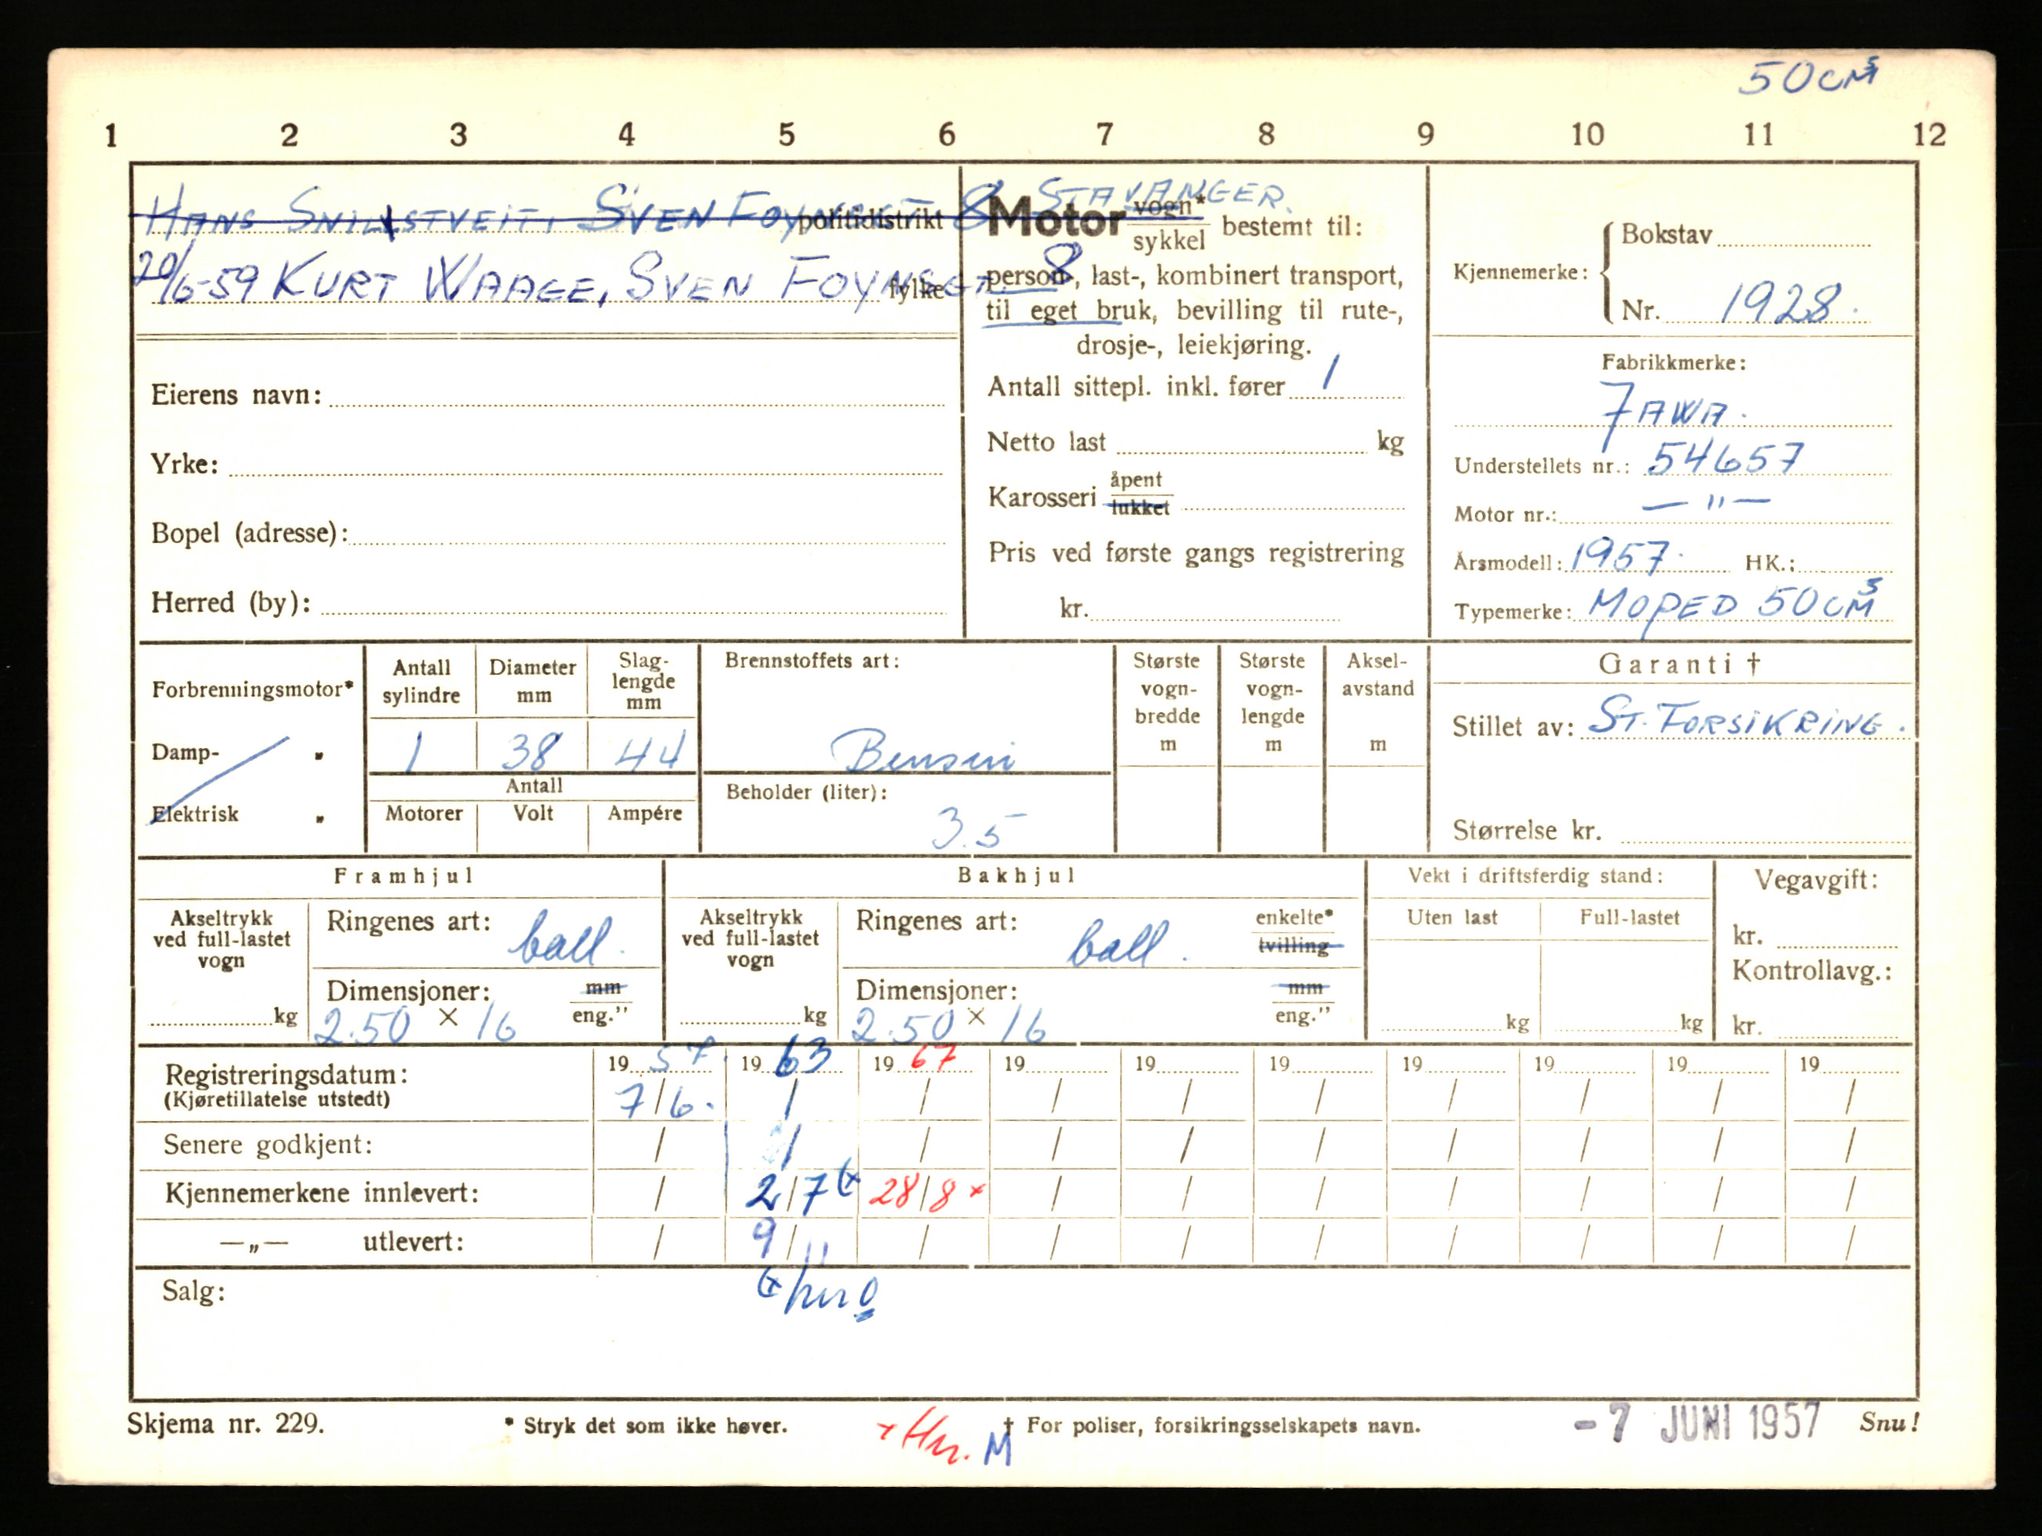 50 cm³
1 2 3 4 5 6 7 8 9 10 11 12
STAVANGER.
SVEN FOYNSGT 8
politidistrikt
20/6-59 KURT WAAGE, SVEN FOYNSGT. 8
fylke
Eierens navn:
Yrke:
Bopel (adresse):
Herred (by):
Motor vogn* sykkel bestemt til:
person-, last-, kombinert transport,
til eget bruk, bevilling til rute-,
drosje-, leiekjøring.
Antall sittepl. inkl. fører 1
Netto last kg
Karosseri åpent lukket
Pris ved første gangs registrering
kr.
Kjennemerke: Bokstav
Nr. 1928.
Fabrikkmerke:
JAWA.
Understellets nr.: 54657
Motor nr.: — " —
Årsmodell: 1957. HK.:
Typemerke: MOPED 50 CM³
Forbrenningsmotor*
Damp- „
Elektrisk „
Antall sylindre
1
Diameter mm
38
Slaglengde mm
44
Antall
Motorer Volt Ampére
Brennstoffets art:
Bensin
Beholder (liter):
3.5
Største vogn-bredde m
Største vogn-lengde m
Aksel-avstand m
Garanti †
Stillet av: ST. FORSIKRING.
Størrelse kr.
Framhjul
Akseltrykk ved full-lastet vogn
kg
Ringenes art: ball.
Dimensjoner: mm eng."
2.50 × 16
Bakhjul
Akseltrykk ved full-lastet vogn
kg
Ringenes art: ball. enkelte* tvilling
Dimensjoner: mm eng."
2.50 × 16
Vekt i driftsferdig stand:
Uten last Full-lastet
kg kg
Vegavgift:
kr.
Kontrollavg.:
kr.
19 57 19 63 19 67 19 19 19 19 19 19 19
Registreringsdatum: 7/6. / / / / / / / / /
(Kjøretillatelse utstedt)
Senere godkjent: / / / / / / / / / /
Kjennemerkene innlevert: / 2/7 28/8 × / / / / / / /
—„— utlevert: / 9/11 / / / / / / / /
Salg:
Skjema nr. 229.
* Stryk det som ikke høver.
† For poliser, forsikringsselskapets navn.
M
-7 JUNI 1957
Snu!